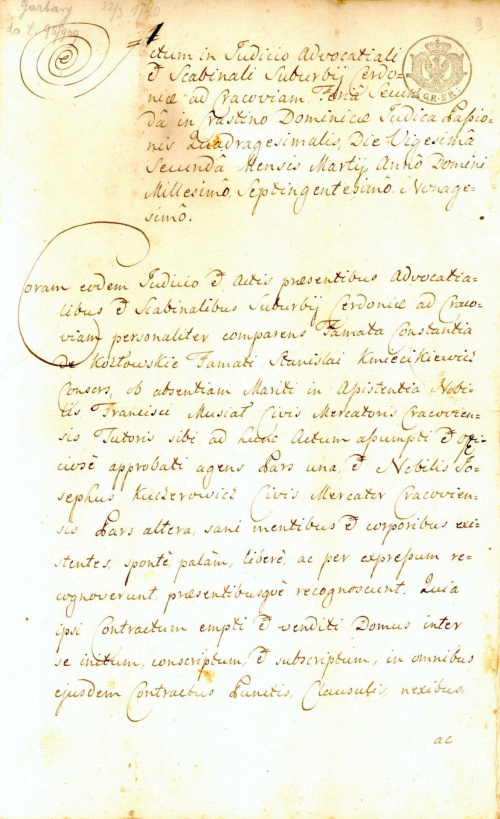 Garbary 22/3 1790
do L. 95/900
9
Actum in Judicio Advocatiali
& Scabinali Suburbij Cerdo-
niæ ad Cracoviam Feriâ Secun-
dâ in Crastino Dominicæ Judica Passio-
nis Quadragesimalis, Die Vigesimâ
Secundâ Mensis Martij, Annô Domini
Millesimô, Septingentesimô, Nonage-
simô.
Coram eodem Judicio & Actis præsentibus Advocatia-
libus & Scabinalibus Suburbij Cerdoniæ ad Craco-
viam personaliter comparens Famata Constantia
de Kozłowskie Famati Stanislai Kmiecikiewicz
Consors, ob absentiam Mariti in Assistentia Nobi-
lis Francisci Musiał Civis Mercatoris Cracovien-
sis Tutoris sibi ad hunc Actum assumpti & offi-
ciosè approbati agens Pars una, & Nobilis Jo-
sephus Kuczerowicz Civis Mercator Cracovien-
sis Pars altera, sani mentibus & corporibus exi-
stentes, spontè, palàm, liberè, ac per expressum re-
cognoverunt, præsentibusquè recognoscunt. Quia
ipsi Contractum empti & venditi Domus inter
se initum, conscriptum, & subscriptum, in omnibus
ejusdem Contractus Punctis, Clausulis, nexibus,
ac